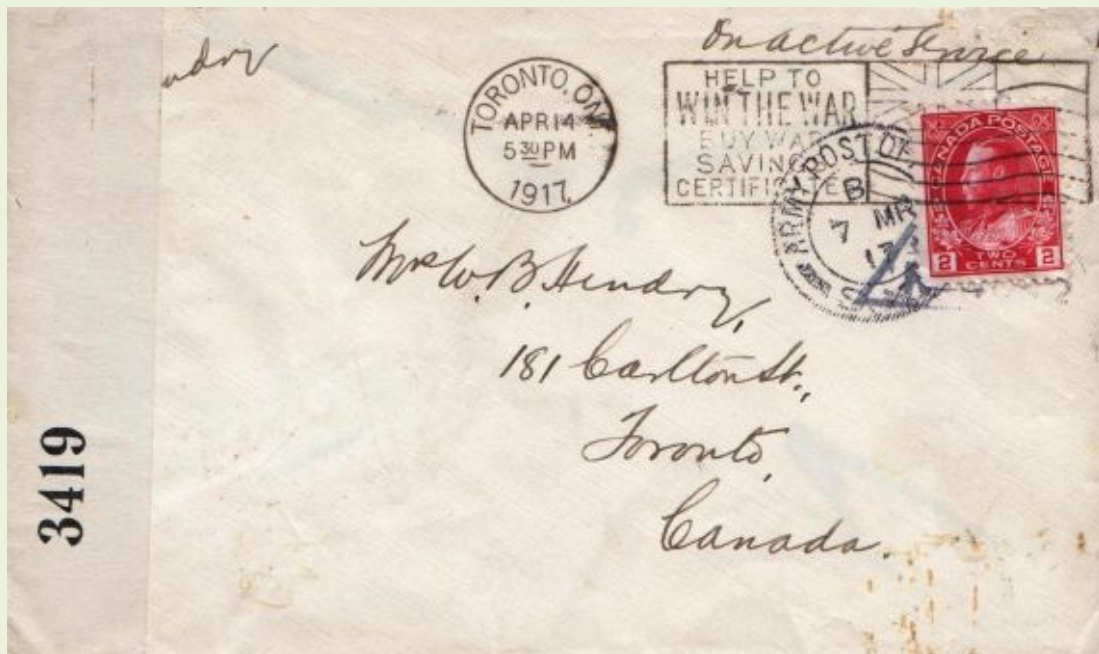 On Active Service
TORONTO, ONT.
APR 14
5 30 PM
1917.
HELP TO
WIN THE WAR
BUY WAR
SAVINGS
CERTIFICATES
ARMY POST OF
B
7 MR
17
CANADA POSTAGE
2 TWO CENTS 2
Mrs W. B. Hendry,
181 Carlton St.,
Toronto,
Canada.
3419